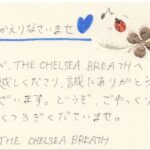 かえりなさいませ
、THE CHELSEA BREATHへ
越しくださり、誠にありがとう
ざいます。どうぞ、ごゆっくり
くつろぎくださいませ。
THE CHELSEA BREATH